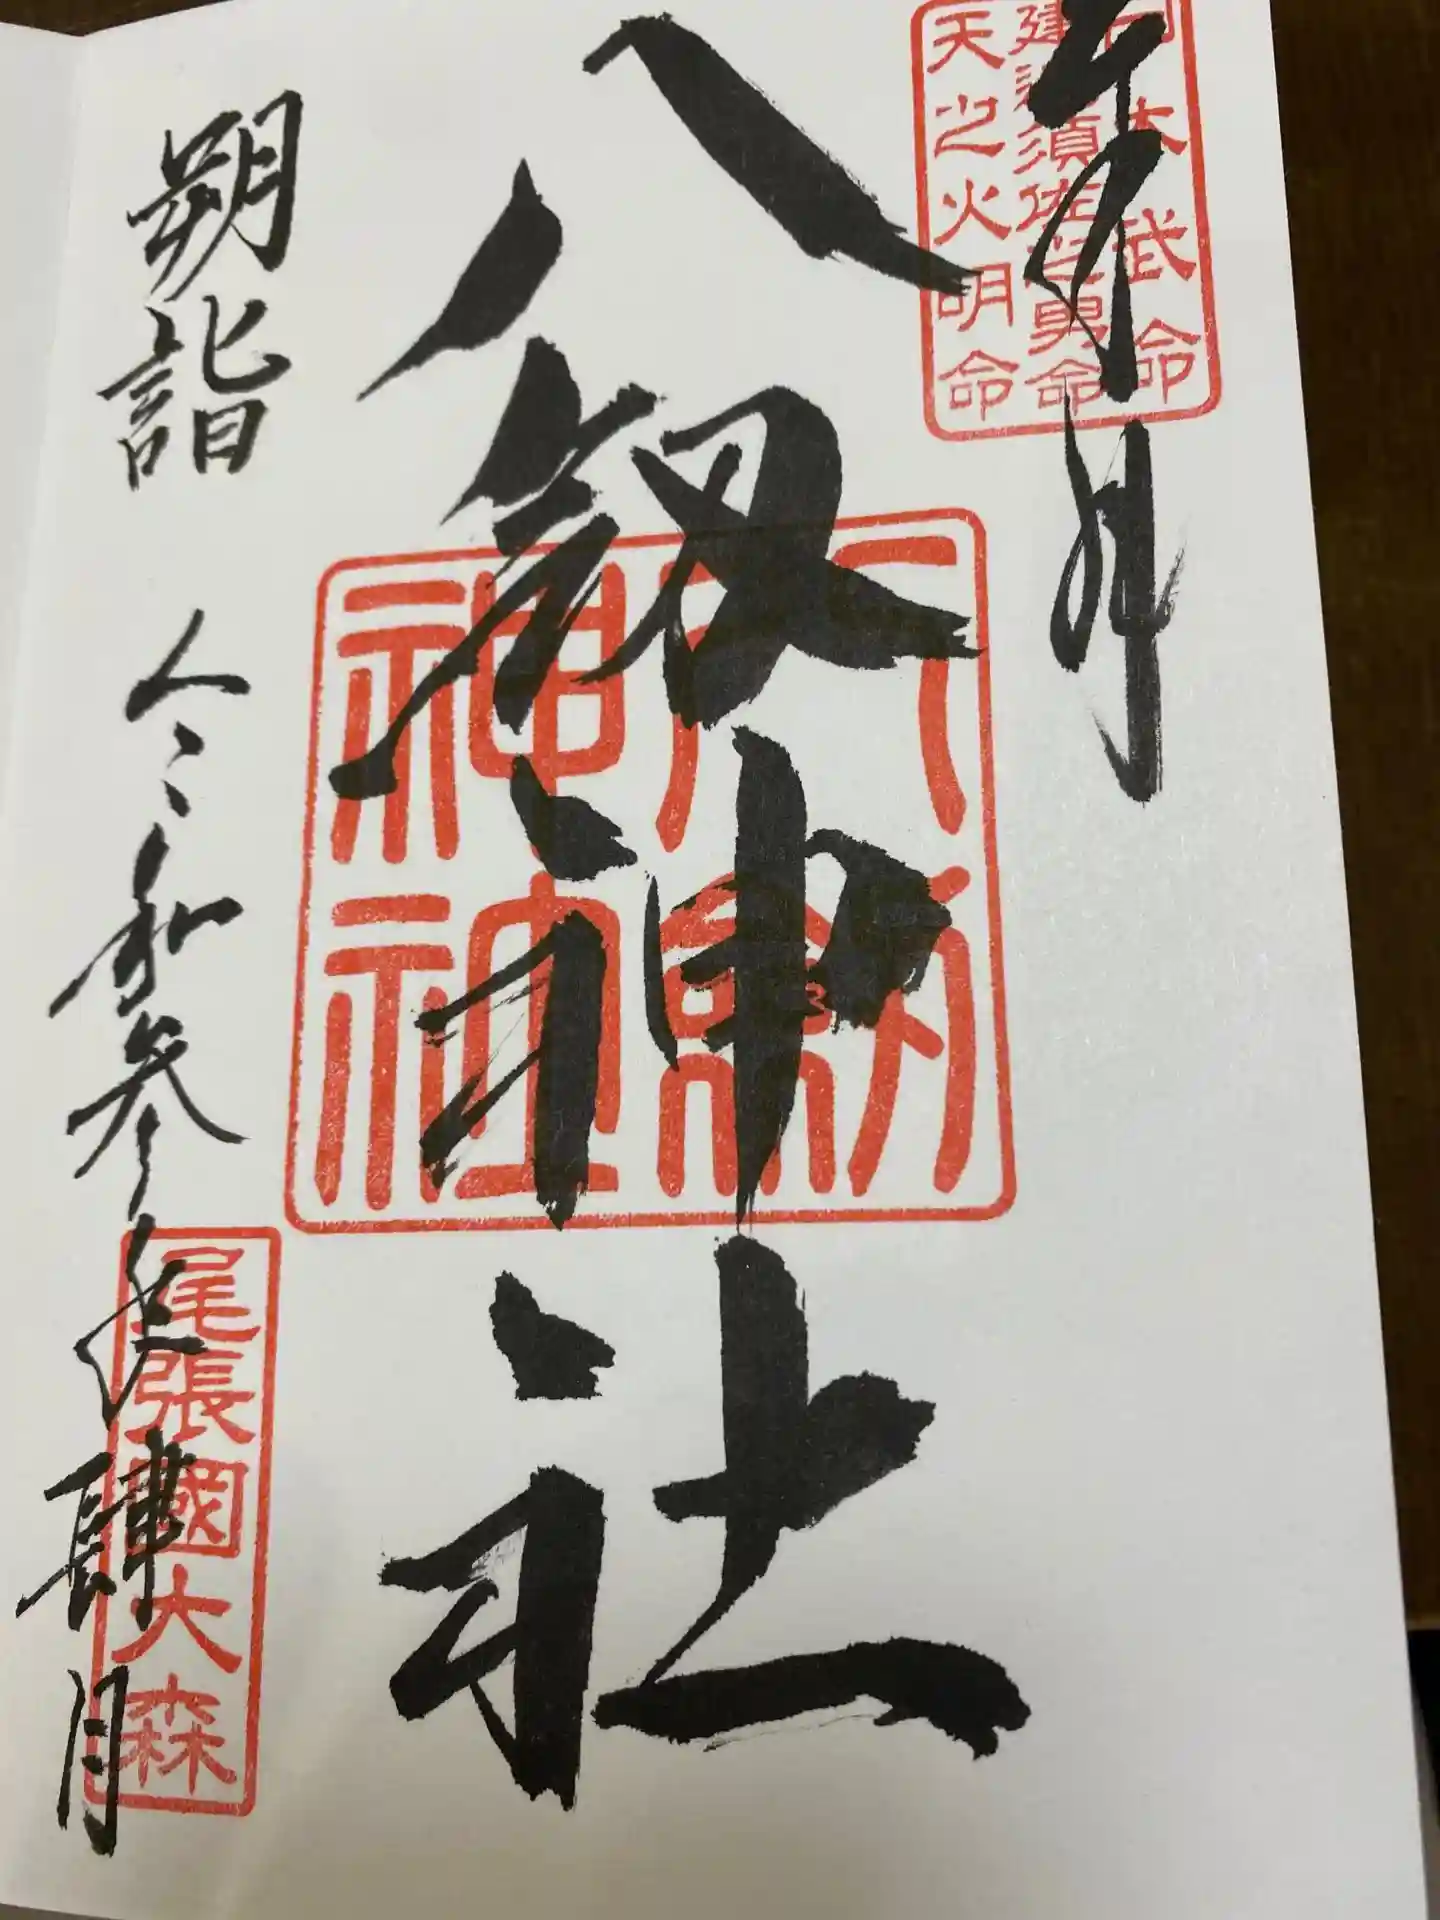 卯月
日本武命
建速須佐之男命
天之火明命
八釼神社
八劔
神社
朔詣 令和参年肆月
尾張國大森